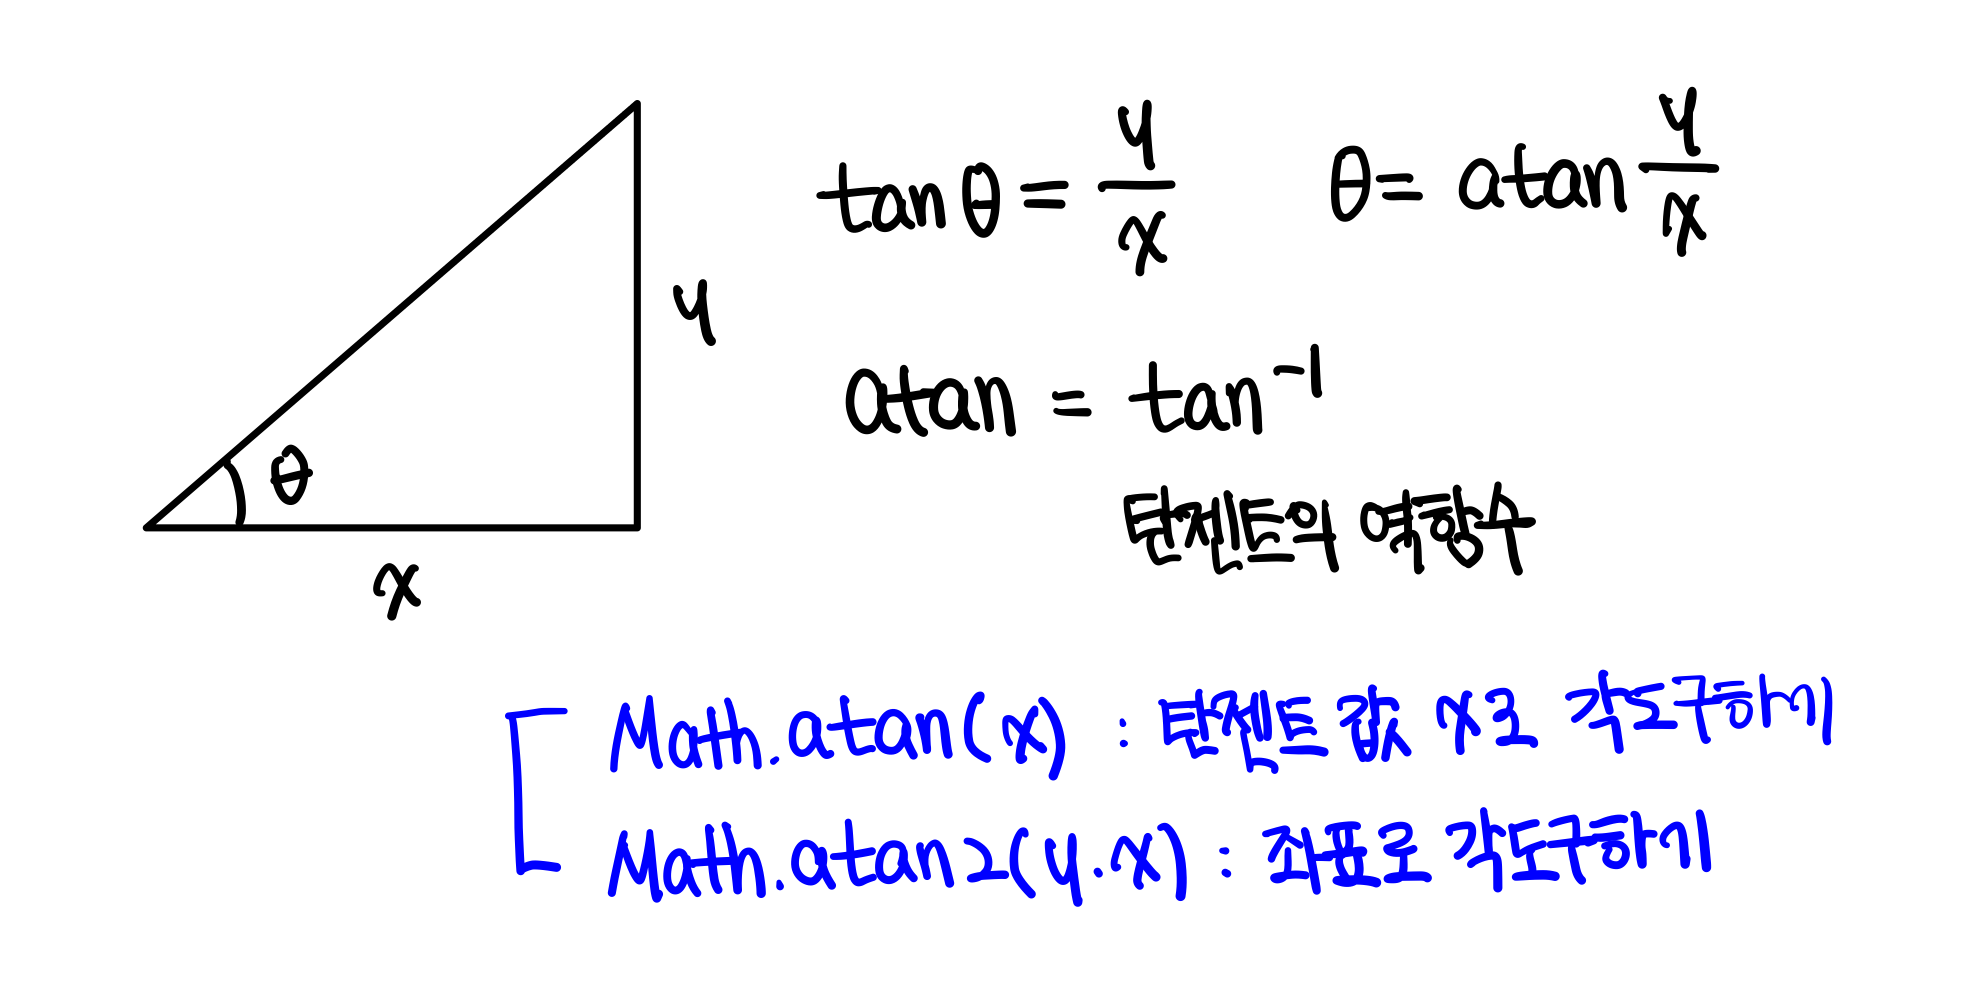 tanθ = y/x
θ = atan y/x
y
atan = tan⁻¹
θ
탄젠트의 역함수
x
Math.atan(x) : 탄젠트 값 x로 각도구하기
Math.atan2(y.x) : 좌표로 각도구하기